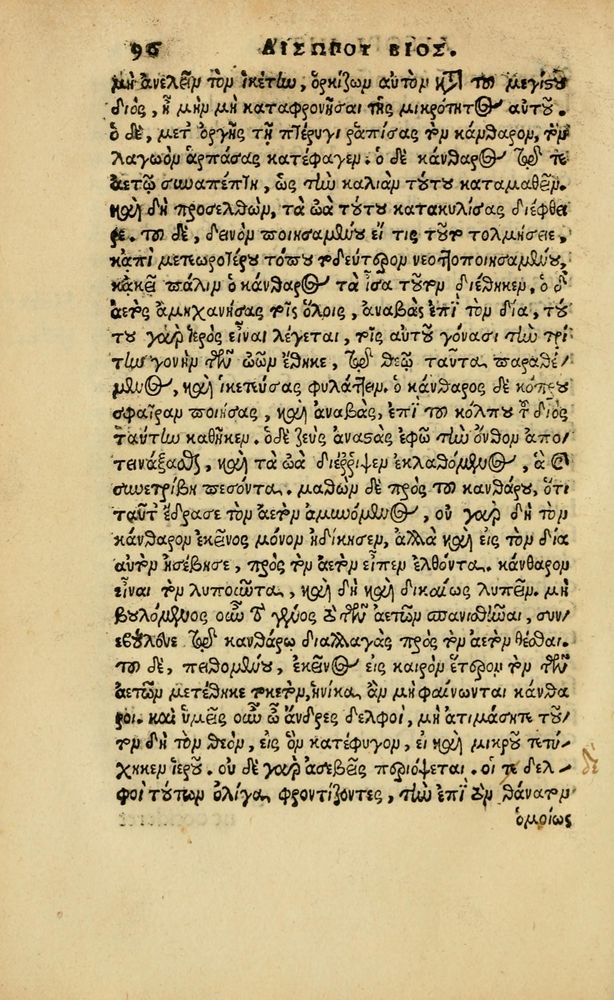 96 ΑΙΣΩΠΟΥ ΒΙΟΣ.
μὴ ἀνελεῖν τὸν ἱκέτην, ὁρκίζων αὐτὸν κατὰ τοῦ μεγίστου
διὸς, ἦ μὴν μὴ καταφρονῆσαι τῆς μικρότητος αὐτοῦ.
ὁ δὲ, μετ' ὀργῆς τῇ πτέρυγι ῥαπίσας τὸν κάνθαρον, τὸν
λαγωὸν ἁρπάσας κατέφαγεν. ὁ δὲ κάνθαρος τῷ τε
ἀετῷ συναπέπτη, ὡς τὴν καλιὰν τούτου καταμαθεῖν.
καὶ δὴ προσελθὼν, τὰ ὠὰ τούτου κατακυλίσας διέφθει
ρε. τοῦ δὲ, δεινὸν ποιησαμένου εἴ τις τοῦτο τολμήσειε,
κἀπὶ μετεωροτέρου τόπου τὸ δεύτερον νεοττοποιησαμένου,
κἀκεῖ πάλιν ὁ κάνθαρος τὰ ἴσα τοῦτον διέθηκεν, ὁ δ'
ἀετὸς ἀμηχανήσας τοῖς ὅλοις, ἀναβὰς ἐπὶ τὸν δία, τού
του γὰρ ἱερὸς εἶναι λέγεται, τοῖς αὐτοῦ γόνασι τὴν τρί
την γονὴν τῶν ὠῶν ἔθηκε, τῷ θεῷ ταῦτα παραθέ/
μενος, καὶ ἱκετεύσας φυλάττειν. ὁ κάνθαρος δὲ κόπρου
σφαῖραν ποιήσας, καὶ ἀναβὰς, ἐπὶ τοῦ κόλπου τοῦ διὸς
ταύτην καθῆκεν. ὁ δὲ ζεὺς ἀναστὰς ἐφ' ᾧ τὴν ὄνθον ἀπο/
τεινάξασθαι, καὶ τὰ ὠὰ διέρριψεν ἐκλαθόμενος, ἃ καὶ
συνετρίβη πεσόντα. μαθὼν δὲ πρὸς τοῦ κανθάρου, ὅτι
ταῦτ' ἔδρασε τὸν ἀετὸν ἀμυνόμενος, οὐ γὰρ δὴ τὸν
κάνθαρον ἐκεῖνος μόνον ἠδίκησεν, ἀλλὰ καὶ εἰς τὸν δία
αὐτὸν ἠσέβησε, πρὸς τὸν ἀετὸν εἶπεν ἐλθόντα. κάνθαρον
εἶναι τὸν λυποῦντα, καὶ δὴ καὶ δικαίως λυπεῖν. μὴ
βουλόμενος οὖν τὸ γένος τὸ τῶν ἀετῶν σπανισθῆναι, συν/
εβούλευε τῷ κανθάρῳ διαλλαγὰς πρὸς τὸν ἀετὸν θέσθαι.
τοῦ δὲ, μὴ πειθομένου, ἐκεῖνος εἰς καιρὸν ἕτερον τὸν τῶν
ἀετῶν μετέθηκε τοκετὸν, ἡνίκα ἂν μὴ φαίνωνται κάνθα
ροι. καὶ ὑμεῖς οὖν ὦ ἄνδρες δελφοὶ, μὴ ἀτιμάσητε τοῦ/
τον δὴ τὸν θεὸν, εἰς ὃν κατέφυγον, εἰ καὶ μικροῦ τετύ/
χηκεν ἱεροῦ. οὐδὲ γὰρ ἀσεβεῖς περιόψεται. οἱ δὲ δελ/
φοὶ τούτων ὀλίγα φροντίζοντες, τὴν ἐπὶ τὸν θάνατον
ὁμοίως